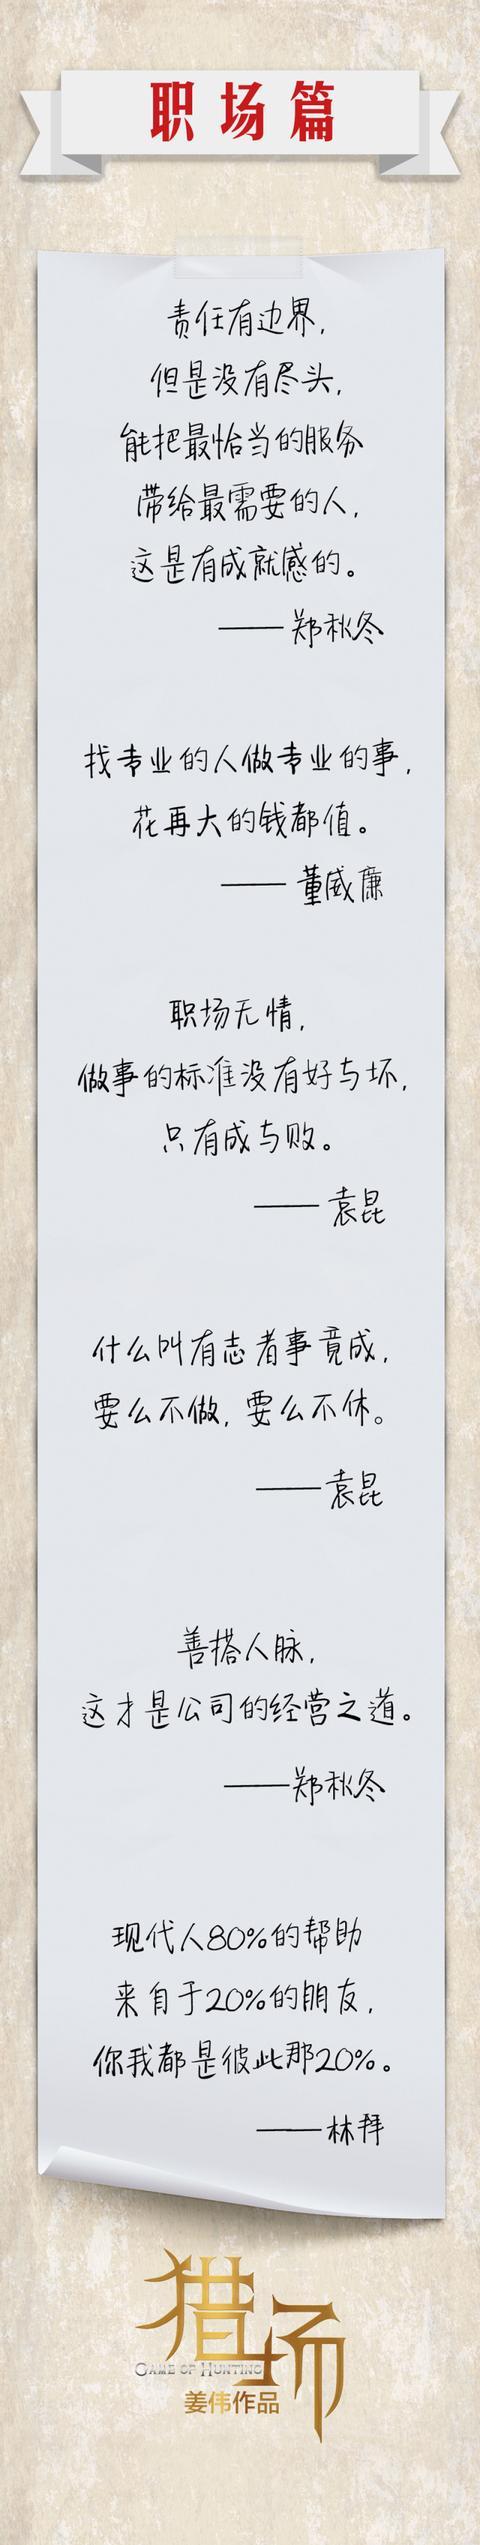 职场篇
责任有边界，
但是没有尽头，
能把最恰当的服务
带给最需要的人，
这是有成就感的。
——郑秋冬
找专业的人做专业的事，
花再大的钱都值。
——董威廉
职场无情，
做事的标准没有好与坏，
只有成与败。
——袁昆
什么叫有志者事竟成，
要么不做，要么不休。
——袁昆
善搭人脉，
这才是公司的经营之道。
——郑秋冬
现代人80%的帮助
来自于20%的朋友，
你我都是彼此那20%。
——林拜
猎场
GAME OF HUNTING
姜伟作品